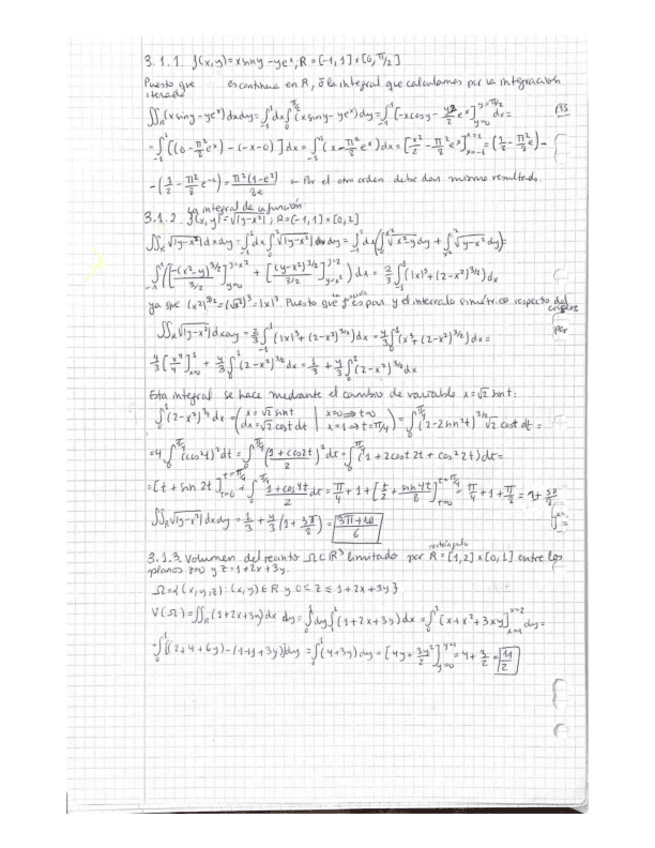 3.1.1. f(x,y)=xsiny-ye^x; R=[-1,1]×[0,π/2]
Puesto que es continua en R, la integral que calculamos por la integración
iterada
∬_R(xsiny-ye^x)dxdy=∫_{-1}^1dx∫_0^{π/2}(xsiny-ye^x)dy=∫_{-1}^1[-xcosy-y²/2 e^x]_{y=0}^{y=π/2}dx=
=∫_{-1}^1[(0-π²/8 e^x)-(-x-0)]dx=∫_{-1}^1(x-π²/8 e^x)dx=[x²/2-π²/8 e^x]_{x=-1}^{x=1}=(1/2-π²/8 e)-
-(1/2-π²/8 e^{-1})=π²(1-e²)/8e ← Por el otro orden debe dar mismo resultado.
La integral de la función
3.1.2. f(x,y)=√|y-x²|, R=[-1,1]×[0,2]
∬_R√|y-x²|dxdy=∫_{-1}^1dx∫_0^2√|y-x²|dy=∫_{-1}^1dx(∫_0^{x²}√x²-y dy+∫_{x²}^2√y-x² dy)=
∫_{-1}^1([-(x²-y)^{3/2}/3/2]_{y=0}^{y=x²}+[(y-x²)^{3/2}/3/2]_{y=x²}^{y=2})dx=2/3∫_{-1}^1(|x|³+(2-x²)^{3/2})dx
ya que (x²)^{3/2}=(√x²)³=|x|³. Puesto que la función f es par y el intervalo simétrico respecto del origen
∬_R√|y-x²|dxdy=2/3∫_{-1}^1(|x|³+(2-x²)^{3/2})dx=4/3∫_0^1(x³+(2-x²)^{3/2})dx= par
4/3[x⁴/4]_{x=0}^1+4/3∫_0^1(2-x²)^{3/2}dx=1/3+4/3∫_0^1(2-x²)^{3/2}dx
Esta integral se hace mediante el cambio de variable x=√2 sint:
∫_0^1(2-x²)^{3/2}dx=(x=√2 sint dx=√2 cost dt | x=0⇒t=0 x=1⇒t=π/4)=∫_0^{π/4}(2-2sin²t)^{3/2}√2 cost dt=
=4∫_0^{π/4}(cos⁴t)dt=∫_0^{π/4}(1+cos2t/2)²dt=∫_0^{π/4}(1+2cos2t+cos²2t)dt=
=[t+sin2t]_{t=0}^{t=π/4}+∫_0^{π/4}1+cos4t/2 dt=π/4+1+[t/2+sin4t/8]_{t=0}^{t=π/4}=π/4+1+π/8=1+3π/8
∬_R√|y-x²|dxdy=1/3+4/3(1+3π/8)=3π+10/6
3.1.3. Volumen del recinto Ω⊂ℝ³ limitado por rectángulo R=[1,2]×[0,1] entre los
planos z=0 y z=1+2x+3y.
Ω={(x,y,z):(x,y)∈R y 0≤z≤1+2x+3y}
V(Ω)=∬_R(1+2x+3y)dx dy=∫_0^1dy∫_1^2(1+2x+3y)dx=∫_0^1[x+x²+3xy]_{x=1}^{x=2}dy=
=∫_0^1[(2+4+6y)-(1+1+3y)]dy=∫_0^1(4+3y)dy=[4y+3y²/2]_{y=0}^{y=1}=4+3/2=11/2